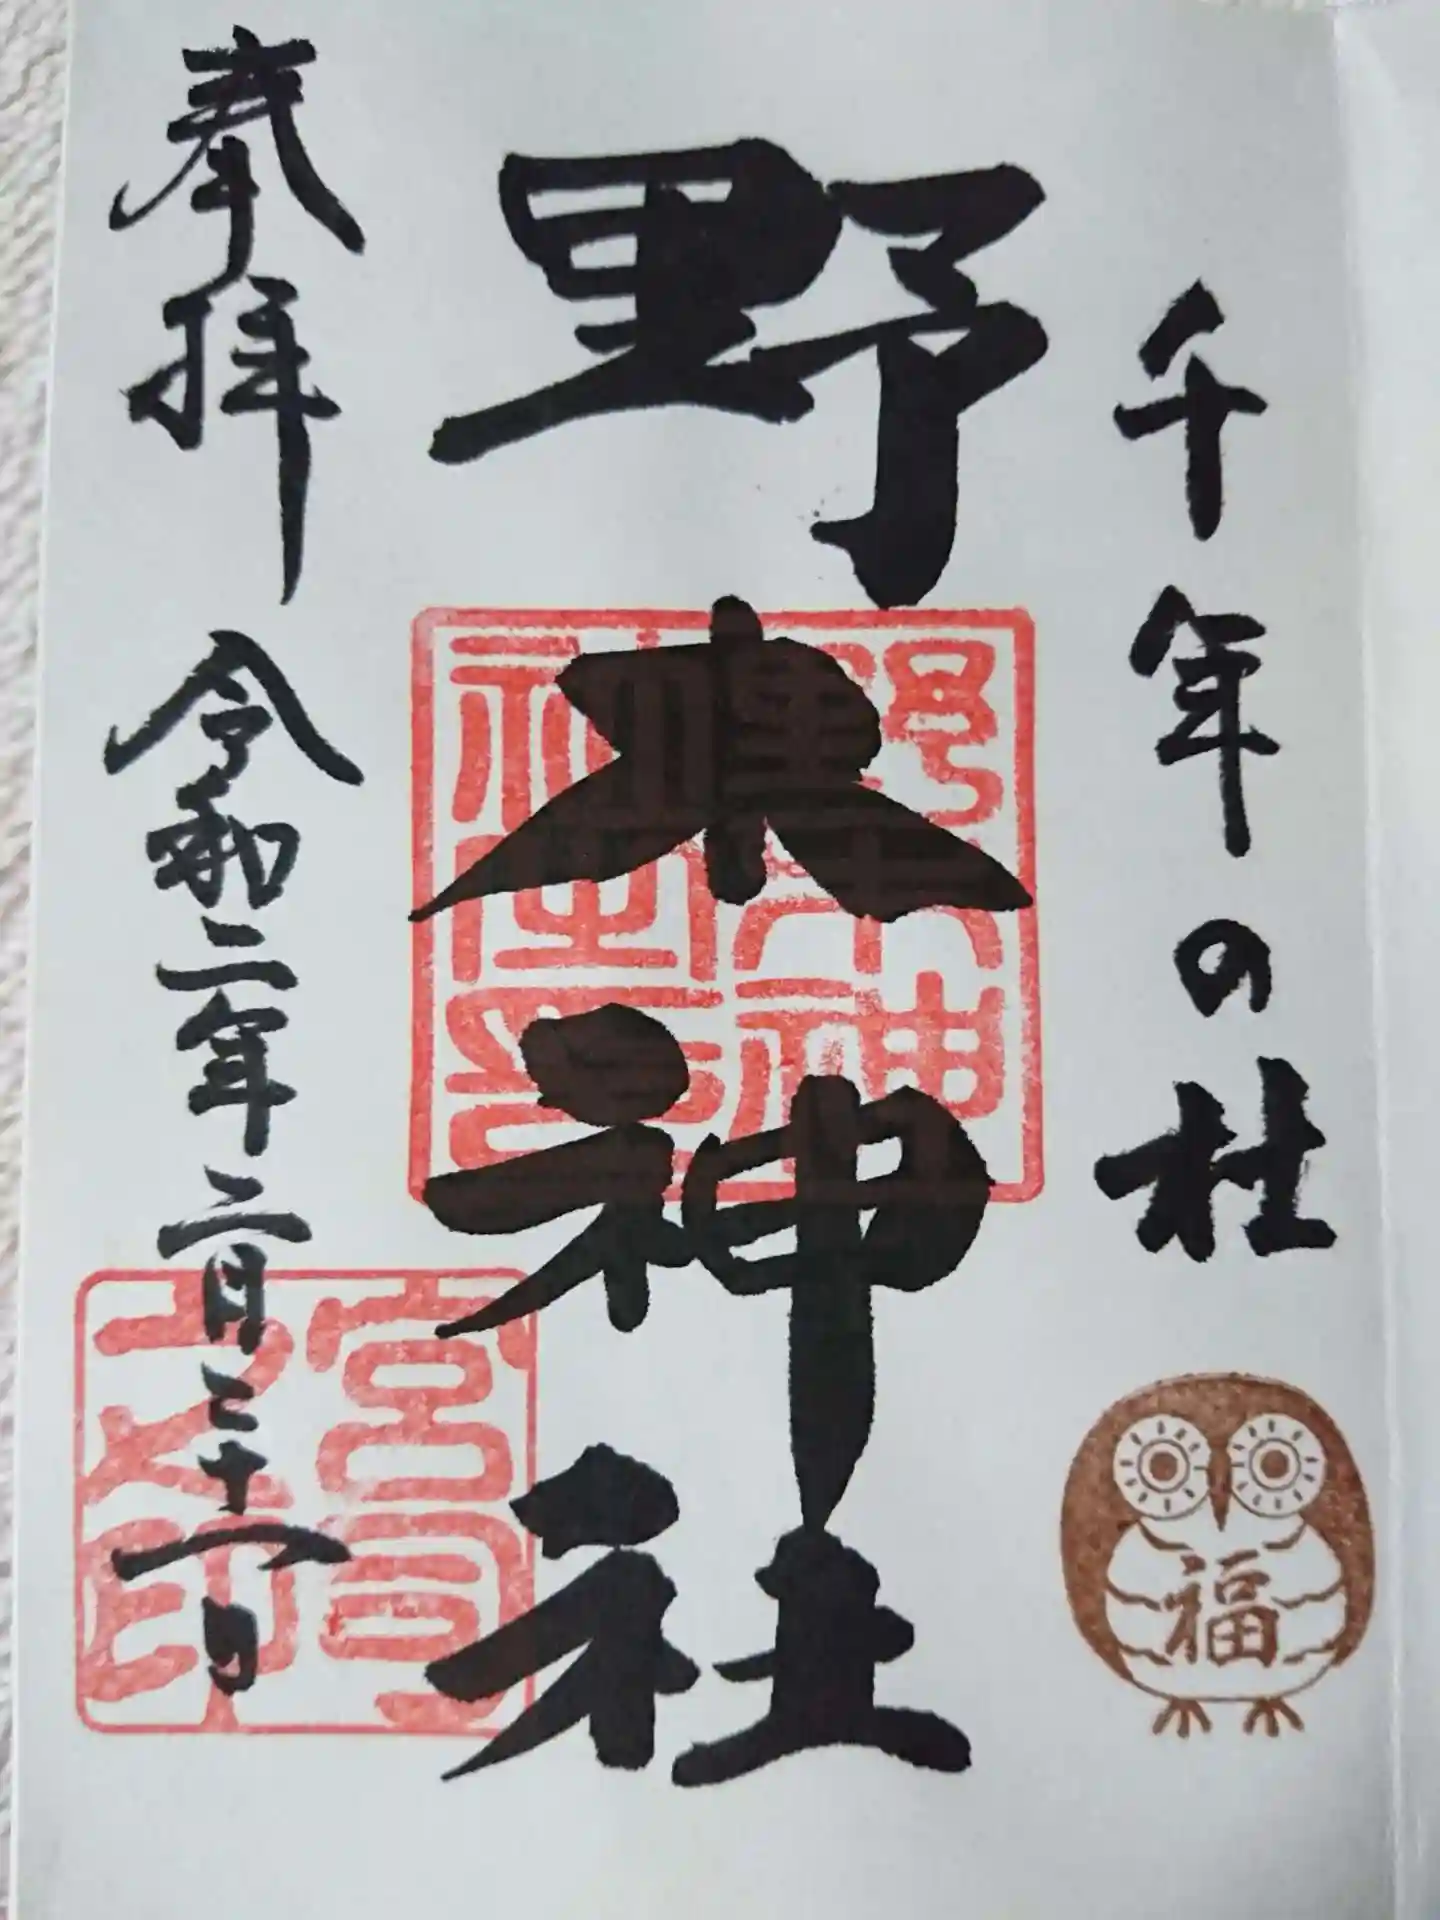 千年の杜
福
野木神社
奉拝
令和二年二月二十一日
宮司之印